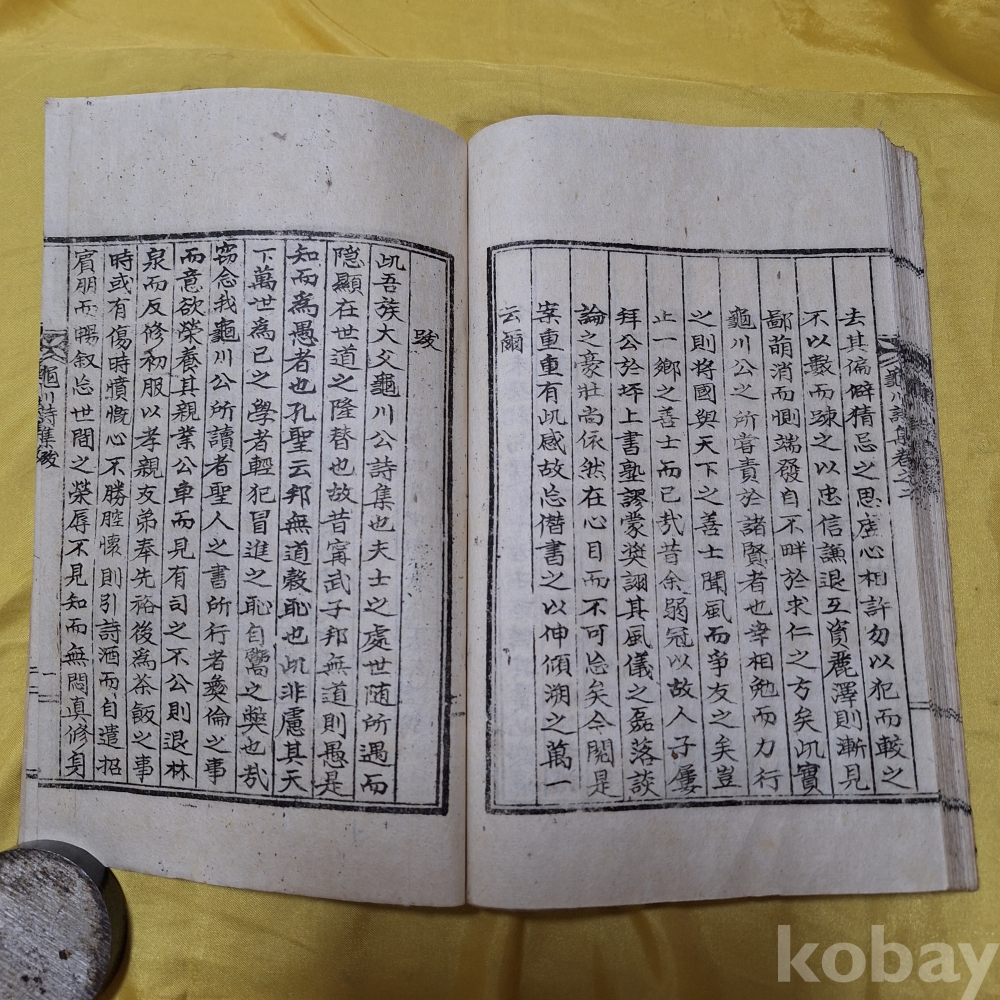 去其偏僻猜忌之思虛心相許勿以犯而較之
不以數而疎之以忠信謙退互資麗澤則漸見
鄙萌消而惻端發自不畔於求仁之方矣此實
龜川公之所嘗責於諸賢者也幸相勉而力行
之則將國與天下之善士聞風而爭友之矣豈
止一鄕之善士而已㦲昔余弱冠以故人子屢
拜公於坪上書塾謬蒙奬詡其風儀之磊落談
論之豪壯尙依然在心目而不可忘矣今閱是
案重重有此感故忘僭書之以伸傾溯之萬一
云爾
龜川詩集卷之二
跋
此吾族大父龜川公詩集也夫士之處世隨所遇而
隱顯在世道之隆替也故昔甯武子邦無道則愚是
知而爲愚者也孔聖云邦無道穀恥也此非慮其天
下萬世爲已之學者輕犯冒進之恥自鬻之弊也㦲
窃念我龜川公所讀者聖人之書所行者彜倫之事
而意欲榮養其親業公車而見有司之不公則退林
泉而反修初服以孝親友弟奉先裕後爲茶飯之事
時或有傷時憤慨心不勝腔懷則引詩酒而自遣招
賓朋而暢叙忘世間之榮辱不見知而無悶眞修身
龜川詩集跋
一
kobay